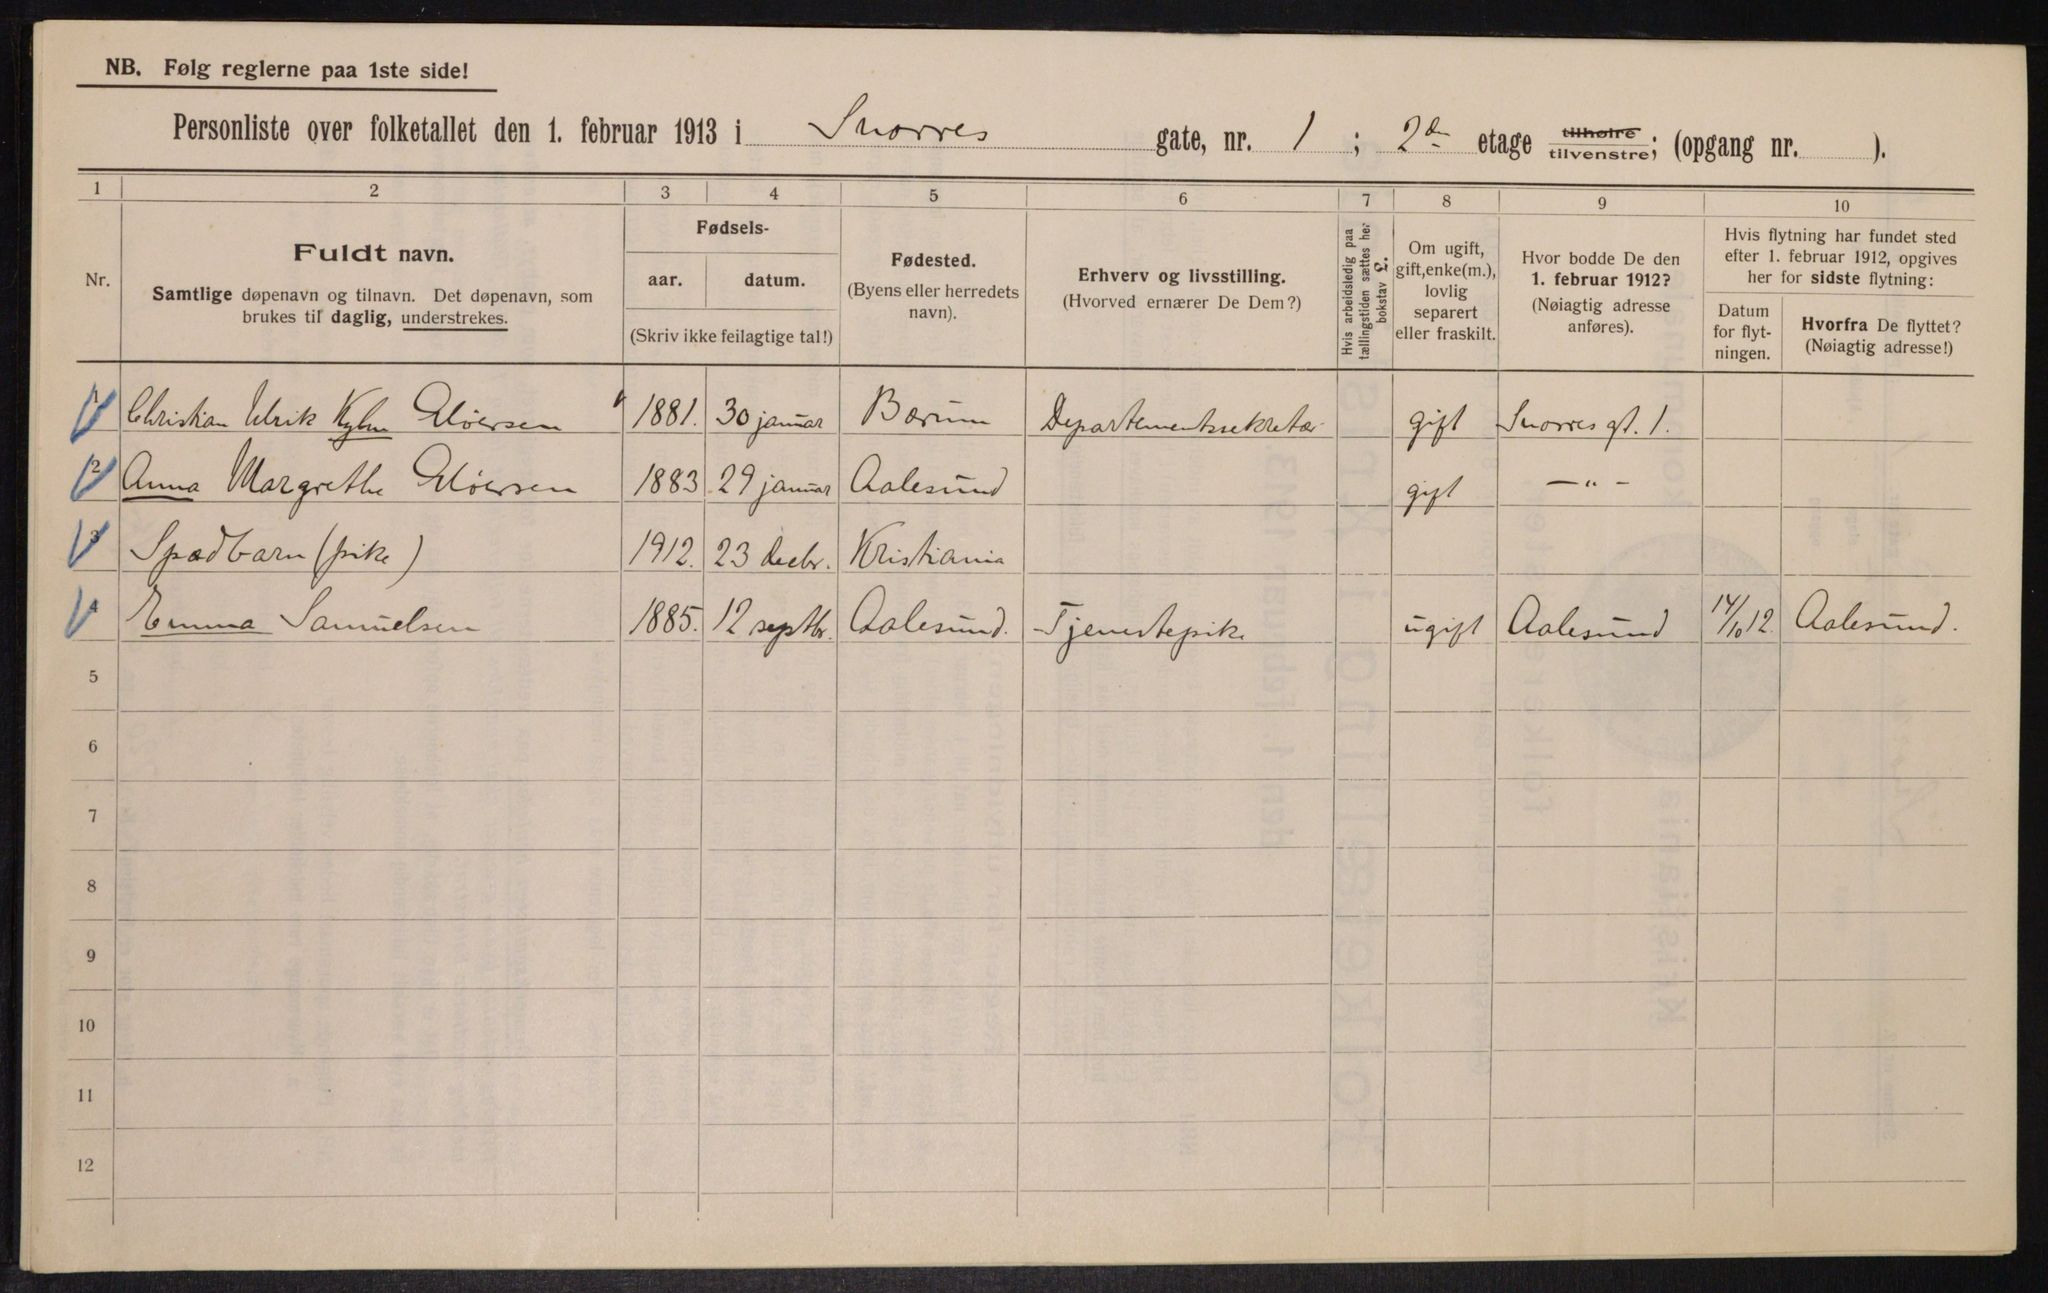 NB. Følg reglerne paa 1ste side!
Personliste over folketallet den 1. februar 1913 i Snorres gate, nr. 1; 2den etage tilhøire tilvenstre; (opgang nr. ).
1 2 3 4 5 6 7 8 9 10
Nr.
Fuldt navn.
Samtlige døpenavn og tilnavn. Det døpenavn, som
brukes til daglig, understrekes.
Fødsels-
aar. datum.
(Skriv ikke feilagtige tal!)
Fødested.
(Byens eller herredets
navn).
Erhverv og livsstilling.
(Hvorved ernærer De Dem?)
Hvis arbeidsledig paa
tællingstiden sættes her
bokstav £.
Om ugift,
gift, enke(m.),
lovlig
separert
eller fraskilt.
Hvor bodde De den
1. februar 1912?
(Nøiagtig adresse
anføres).
Hvis flytning har fundet sted
efter 1. februar 1912, opgives
her for sidste flytning:
Datum
for flyt-
ningen.
Hvorfra De flyttet?
(Nøiagtig adresse!)
1 Christian Ulrik Kyhn Gløersen 1881. 30 januar Bærum Departementssekretær gift Snorres gt. 1.
2 Anna Margrethe Gløersen 1883 29 januar Aalesund gift — " —
3 Spædbarn (pike) 1912. 23 decbr. Kristiania
4 Emma Samuelsen 1885. 12 septbr. Aalesund. Tjenestepike ugift Aalesund 14/10 12. Aalesund.
5
6
7
8
9
10
11
12